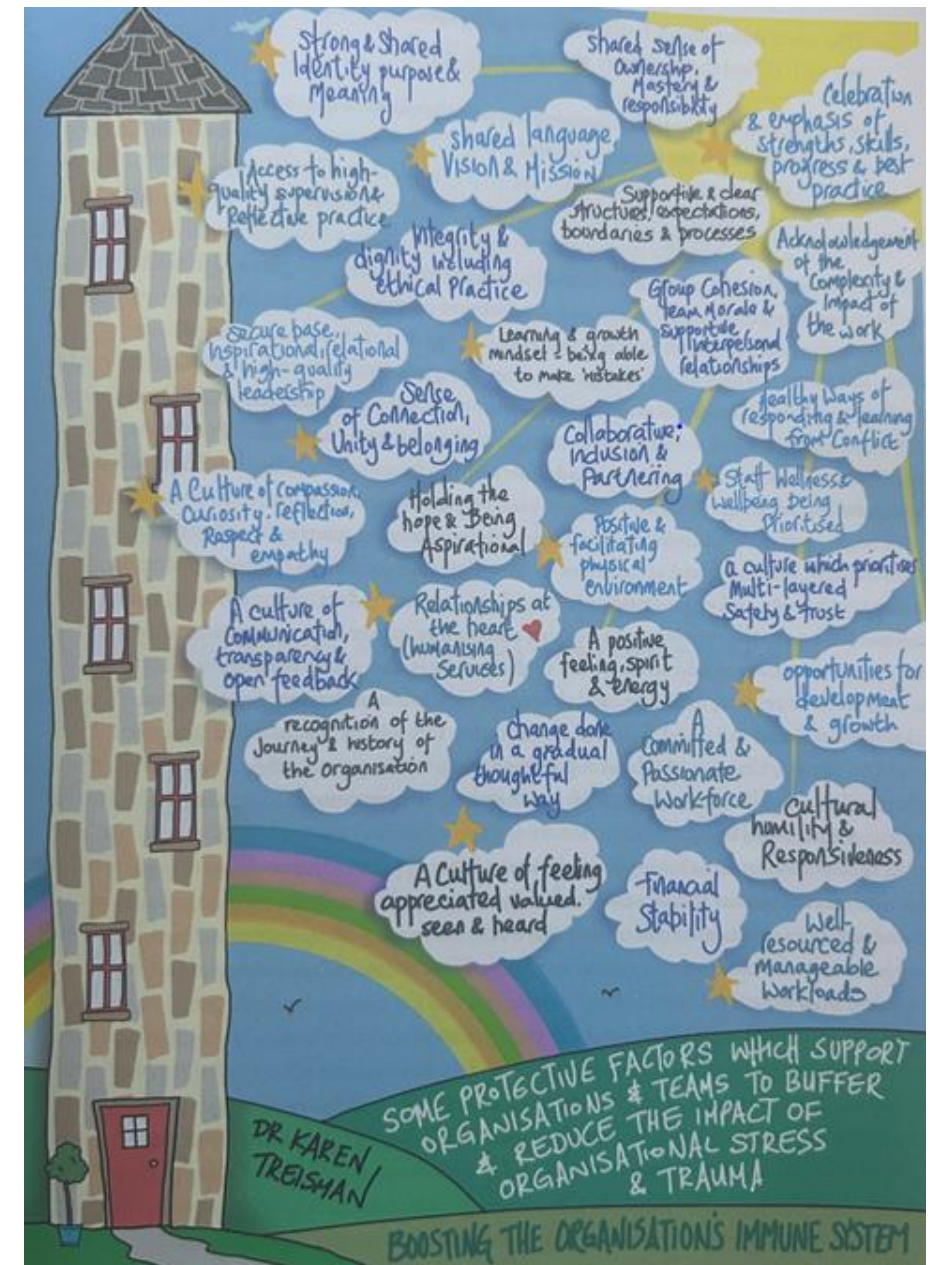 Strong & Shared
Identity purpose &
Meaning
Shared sense of
Ownership,
Mastery &
responsibility
Celebration
& emphasis of
strengths, skills,
progress & best
practice
Shared language,
Vision & Mission
Access to high-
quality supervision &
Reflective practice
Supportive & clear
structures, expectations,
boundaries & processes
Integrity &
dignity including
Ethical Practice
Acknowledgement
of the
Complexity &
Impact of
the work
Group Cohesion,
Team Morale &
Supportive
Interpersonal
relationships
Secure base,
inspirational, relational
& high-quality
leadership
Learning & growth
mindset - being able
to make 'mistakes'
Sense
of Connection,
Unity & belonging
Healthy ways of
responding & learning
from Conflict
Collaborative,
inclusion &
Partnering
A Culture of compassion,
Curiosity, reflection,
Respect &
empathy
Holding the
hope & Being
Aspirational
Staff Wellness &
wellbeing being
Prioritised
Positive &
facilitating
physical
environment
a culture which prioritises
Multi-layered
Safety & trust
A culture of
Communication,
transparency &
open feedback
Relationships at
the heart
(humanising
Services)
A positive
feeling, spirit
& energy
opportunities for
development
& growth
A
recognition of the
Journey & history of
the organisation
change done
in a gradual
thoughtful
way
A
Committed &
Passionate
Workforce
Cultural
humility &
Responsiveness
A Culture of feeling
appreciated, valued,
seen & heard
Financial
Stability
Well-
resourced &
Manageable
Workloads
SOME PROTECTIVE FACTORS WHICH SUPPORT
ORGANISATIONS & TEAMS TO BUFFER
& REDUCE THE IMPACT OF
ORGANISATIONAL STRESS
& TRAUMA
DR KAREN
TREISMAN
BOOSTING THE ORGANISATION'S IMMUNE SYSTEM